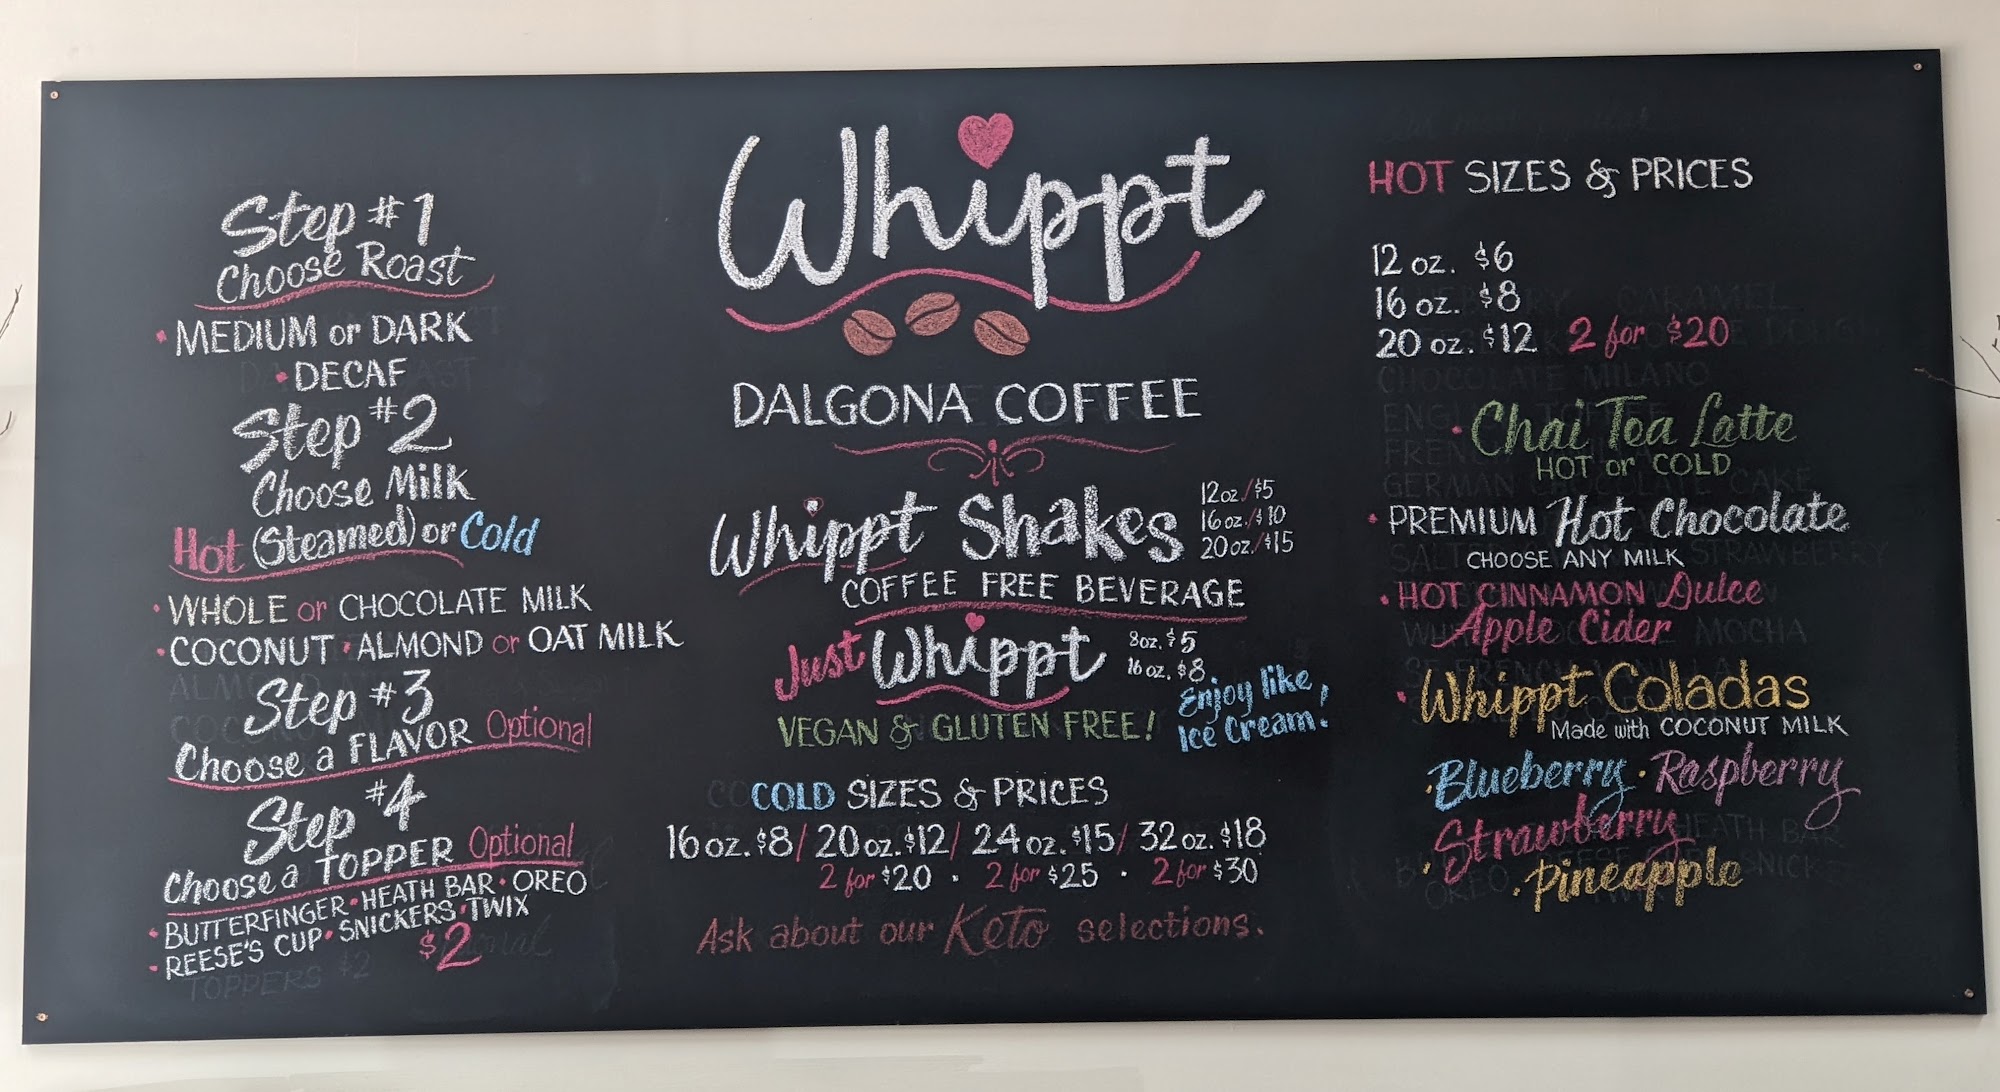 Step #1
Choose Roast
• MEDIUM or DARK
• DECAF
Step #2
Choose Milk
Hot (Steamed) or Cold
• WHOLE or CHOCOLATE MILK
• COCONUT • ALMOND or OAT MILK
Step #3
Choose a FLAVOR Optional
Step #4
Choose a TOPPER Optional
• BUTTERFINGER • HEATH BAR • OREO
• REESE'S CUP • SNICKERS • TWIX
$2
TOPPERS $2
Whippt
DALGONA COFFEE
Whippt Shakes
12oz./$5
16oz./$10
20oz./$15
COFFEE FREE BEVERAGE
Just Whippt
8oz. $5
16 oz. $8
VEGAN & GLUTEN FREE!
Enjoy like
Ice Cream!
COLD SIZES & PRICES
16 oz. $8/ 20oz. $12/ 24 oz. $15/ 32 oz. $18
2 for $20 • 2 for $25 • 2 for $30
Ask about our Keto selections.
HOT SIZES & PRICES
12 oz. $6
16 oz. $8
20 oz. $12 2 for $20
• Chai Tea Latte
HOT or COLD
• PREMIUM Hot Chocolate
CHOOSE ANY MILK
• HOT CINNAMON Dulce
Apple Cider
• Whippt Coladas
Made with COCONUT MILK
• Blueberry • Raspberry
• Strawberry
• Pineapple